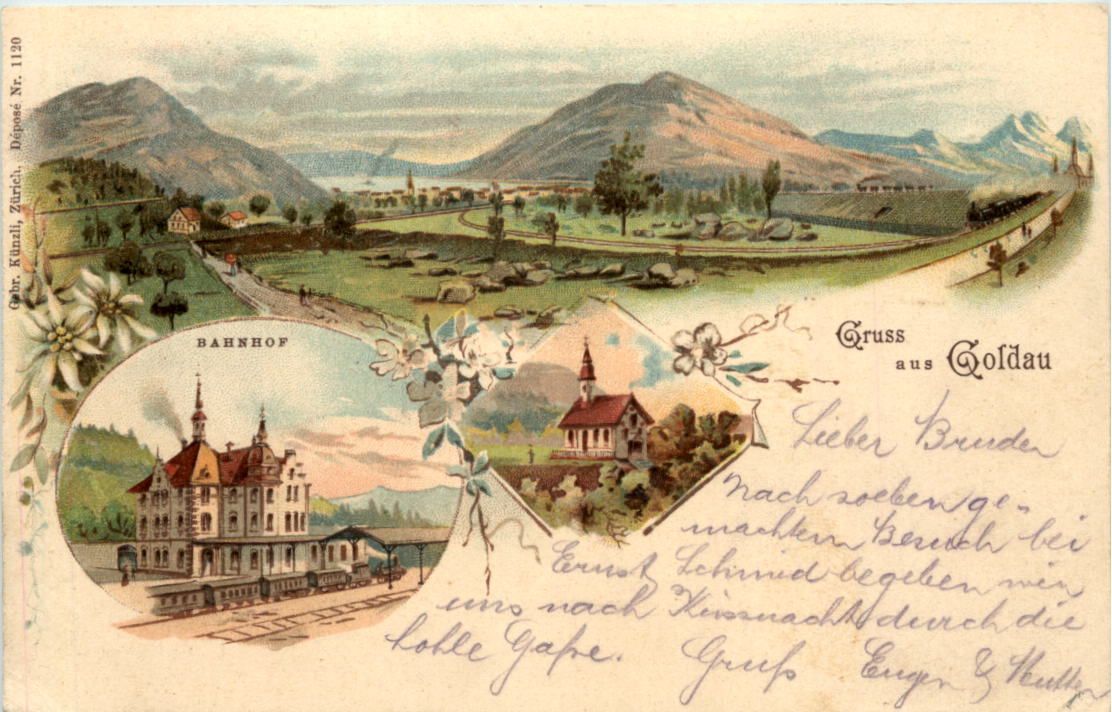 Gebr. Künzli, Zürich. Déposé Nr. 1120
BAHNHOF
Gruss
aus Goldau
Lieber Bruder
Nach soeben ge-
machtem Besuch bei
Ernst Schmid begeben wir
uns nach Küssnacht durch die
hohle Gaße.
Gruß Eugen & Mutter